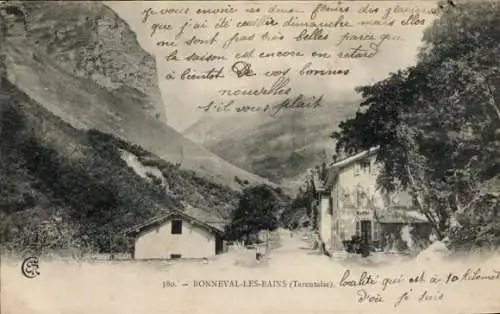 je vous envoie deux fleurs des
que j'ai été cueillir dimanche mais elles
ne sont pas très belles parce
que la saison est encore en retard
à bientôt de vos bonnes
nouvelles
s'il vous plaît
180. - BONNEVAL-LES-BAINS (Tarentaise).
localité qui est à 10 kilomet
d'où je suis